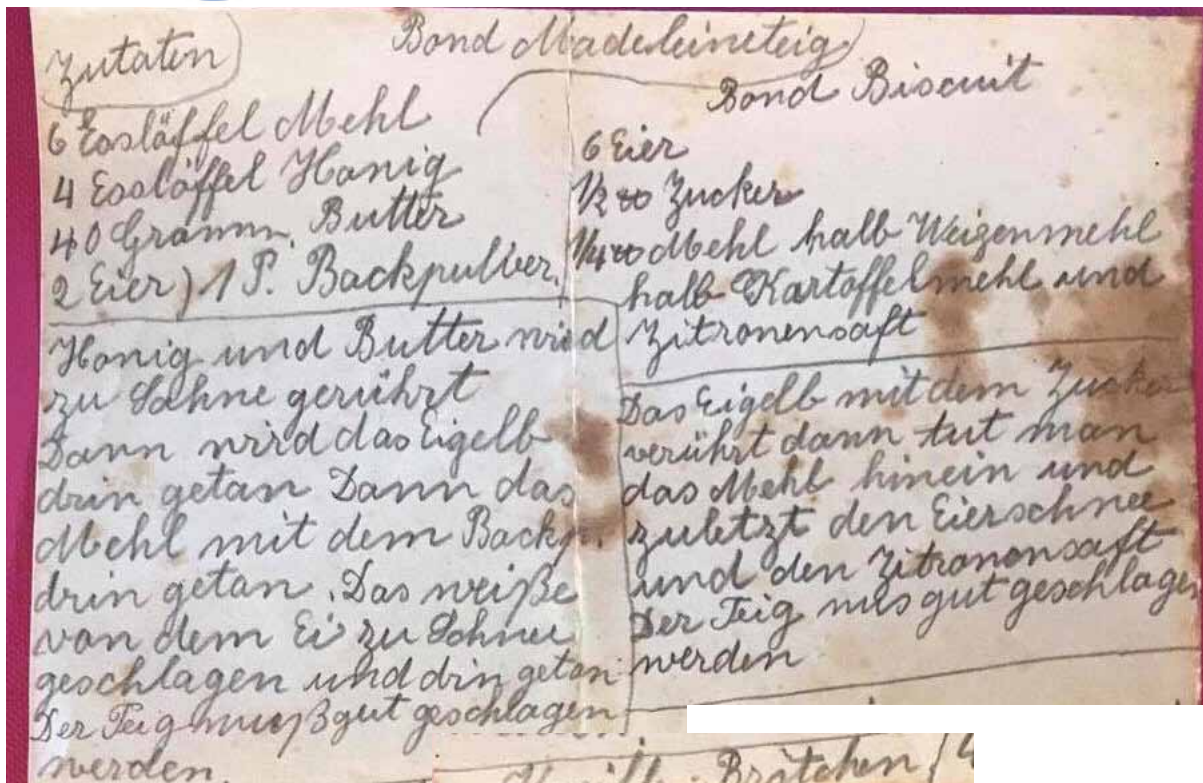 Zutaten
Bond Madeleineteig
6 Esslöffel Mehl
4 Esslöffel Honig
40 Gramm. Butter
2 Eier) 1 P. Backpullver.
Honig und Butter wird
zu Sahne gerührt
Dann wird das Eigelb
drin getan Dann das
Mehl mit dem Backp.
drin getan. Das weiße
von dem Ei zu Schnee
geschlagen und drin getan
Der Teig muß gut geschlagen
werden.
Bond Biscuit
6 Eier
1/2 Zucker
1/4 Mehl halb Weizenmehl
halb Kartoffelmehl und
Zitronensaft
Das Eigelb mit dem Zucker
verührt dann tut man
das Mehl hinein und
zuletzt den Eierschnee
und den Zitronensaft
Der Teig mus gut geschlagen
werden
Brötchen